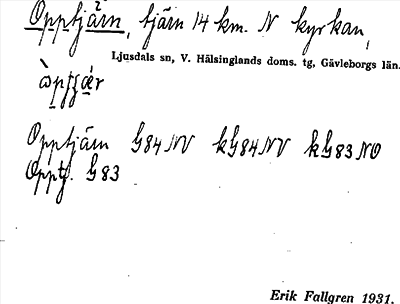 Opptjärn, tjärn 14 km. N kyrkan,
Ljusdals sn, V. Hälsinglands doms. tg, Gävleborgs län.
Opptjärn G84NV kG84NV kG83NO
Opptj. G83
Erik Fallgren 1931.